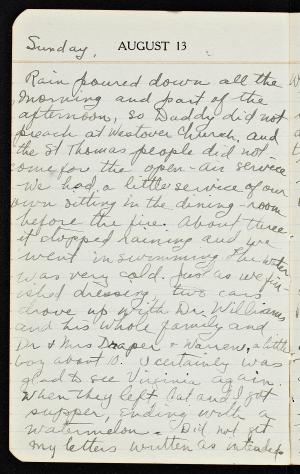 Sunday, AUGUST 13
Rain poured down all the
morning and part of the
afternoon, so Daddy did not
preach at Westover Church, and
the St Thomas people did not
come for the open-air service.
We had a little service of our
own sitting in the dining-room
before the fire. About three
it stopped raining and we
went in swimming. The water
was very cold. Just as we fin-
ished dressing two cars
drove up with Dr. Williams
and his whole family and
Dr & Mrs Draper & Warren, a little
boy about 10. I certainly was
glad to see Virginia again.
When they left Cat and I got
supper, ending with a
watermelon. Did not get
my letters written as intended